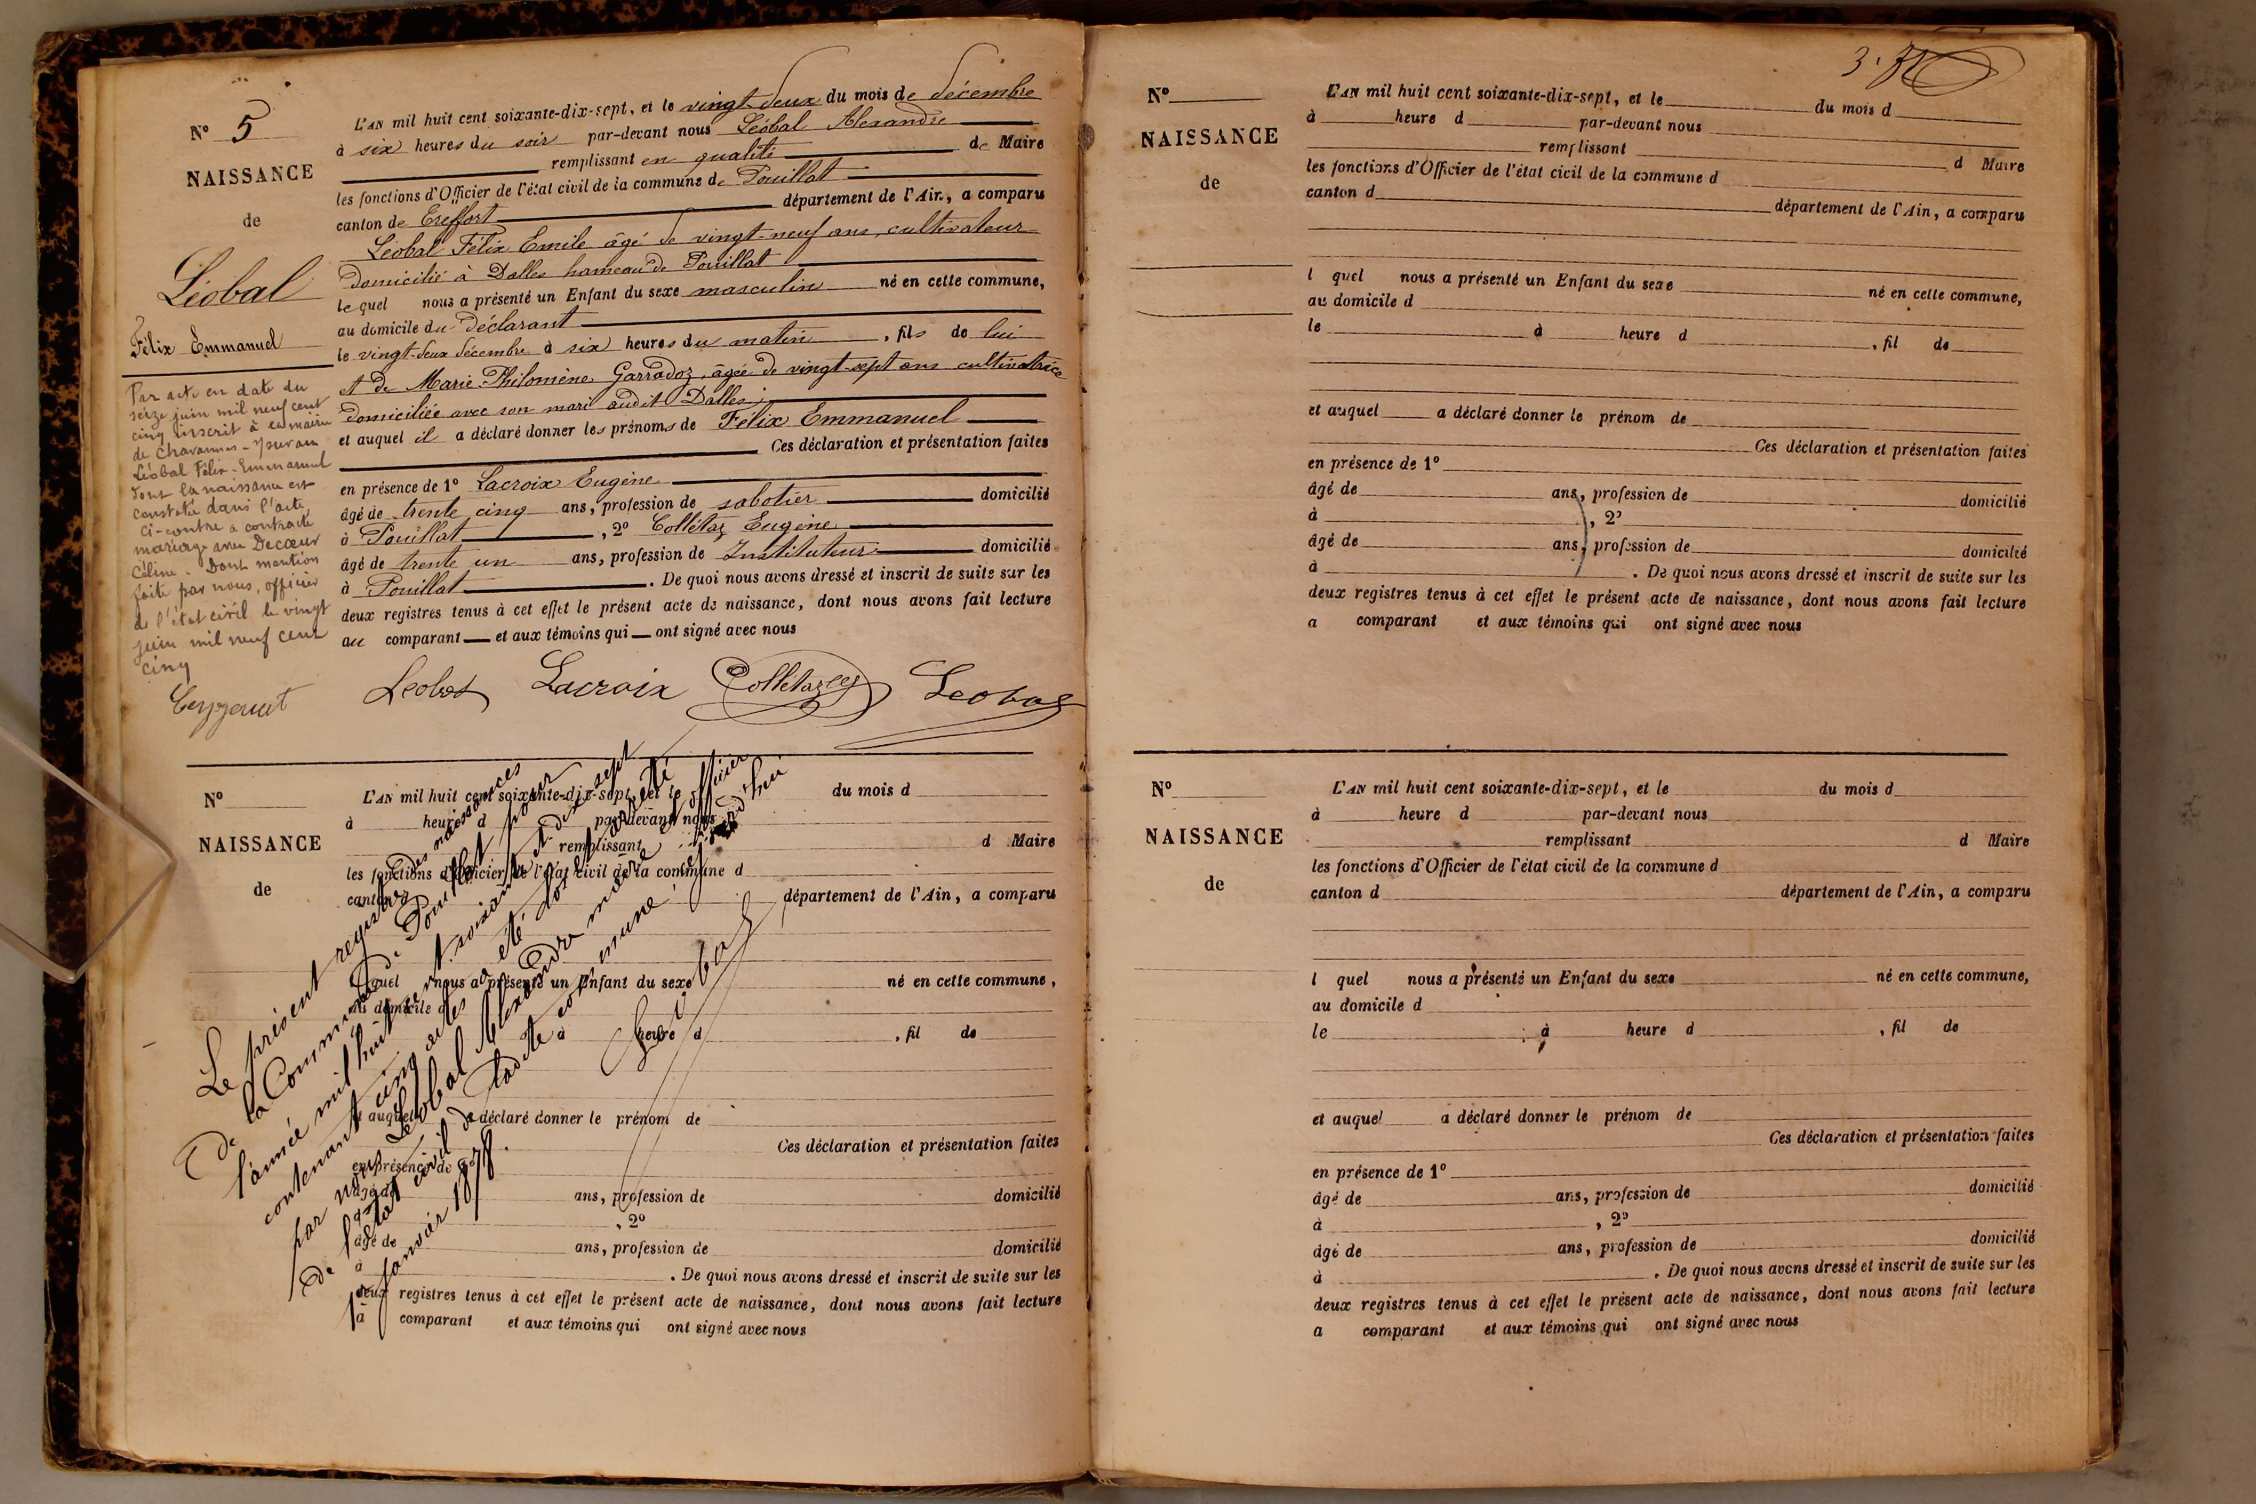 Nº 5
NAISSANCE
de
Léobal
Félix Emmanuel
Par acte en date du
seize juin mil neuf cent
cinq inscrit à la mairie
de Chavannes-
Léobal Félix-Emmanuel
dont la naissance est
constatée dans l'acte
ci-contre a contracté
mariage avec Decœur
Céline. Dont mention
faite par nous, officier
de l'état civil le vingt
juin mil neuf cent
cinq
L'AN mil huit cent soixante-dix-sept, et le vingt-deux du mois de décembre
à six heures du soir par-devant nous Léobal Alexandre
remplissant en qualité de Maire
les fonctions d'Officier de l'état civil de la commune de Pouillat
canton de Treffort département de l'Ain, a comparu
Léobal Félix Emile âgé de vingt-neuf ans, cultivateur
domicilié à Dalles hameau de Pouillat
lequel nous a présenté un Enfant du sexe masculin né en cette commune,
au domicile du déclarant
le vingt-deux décembre à six heures du matin, fils de lui
et de Marie Philomène Garradoz, âgée de vingt-sept ans cultivatrice
domiciliée avec son mari audit Dalles;
et auquel il a déclaré donner les prénoms de Félix Emmanuel
Ces déclaration et présentation faites
en présence de 1º Lacroix Eugène
âgé de trente cinq ans, profession de sabotier domicilié
à Pouillat, 2º Collétaz Eugène
âgé de trente un ans, profession de Instituteur domicilié
à Pouillat. De quoi nous avons dressé et inscrit de suite sur les
deux registres tenus à cet effet le présent acte de naissance, dont nous avons fait lecture
au comparant et aux témoins qui ont signé avec nous
Leobal Lacroix Collétaz Leobal
Nº
NAISSANCE
de
L'AN mil huit cent soixante-dix-sept, et le du mois d
à heure d par-devant nous
remplissant d Maire
les fonctions d'Officier de l'état civil de la commune d
canton d département de l'Ain, a comparu
l quel nous a présenté un Enfant du sexe né en cette commune,
au domicile d
le à heure d , fil de
et auquel a déclaré donner le prénom de
Ces déclaration et présentation faites
en présence de 1º
âgé de ans, profession de domicilié
à , 2º
âgé de ans, profession de domicilié
à . De quoi nous avons dressé et inscrit de suite sur les
deux registres tenus à cet effet le présent acte de naissance, dont nous avons fait lecture
a comparant et aux témoins qui ont signé avec nous
Le présent registre des naissances
de la Commune de Pouillat pour
l'année mil huit cent soixante et dix-sept
contenant cinq actes a été clos et arrêté
par nous Léobal Alexandre maire et officier
de l'état civil de ladite commune
1er Janvier 1878.
Leobal
Nº
NAISSANCE
de
L'AN mil huit cent soixante-dix-sept, et le du mois d
à heure d par-devant nous
remplissant d Maire
les fonctions d'Officier de l'état civil de la commune d
canton d département de l'Ain, a comparu
l quel nous a présenté un Enfant du sexe né en cette commune,
au domicile d
le à heure d , fil de
et auquel a déclaré donner le prénom de
Ces déclaration et présentation faites
en présence de 1º
âgé de ans, profession de domicilié
à , 2º
âgé de ans, profession de domicilié
à . De quoi nous avons dressé et inscrit de suite sur les
deux registres tenus à cet effet le présent acte de naissance, dont nous avons fait lecture
a comparant et aux témoins qui ont signé avec nous
Nº
NAISSANCE
de
L'AN mil huit cent soixante-dix-sept, et le du mois d
à heure d par-devant nous
remplissant d Maire
les fonctions d'Officier de l'état civil de la commune d
canton d département de l'Ain, a comparu
l quel nous a présenté un Enfant du sexe né en cette commune,
au domicile d
le à heure d , fil de
et auquel a déclaré donner le prénom de
Ces déclaration et présentation faites
en présence de 1º
âgé de ans, profession de domicilié
à , 2º
âgé de ans, profession de domicilié
à . De quoi nous avons dressé et inscrit de suite sur les
deux registres tenus à cet effet le présent acte de naissance, dont nous avons fait lecture
a comparant et aux témoins qui ont signé avec nous